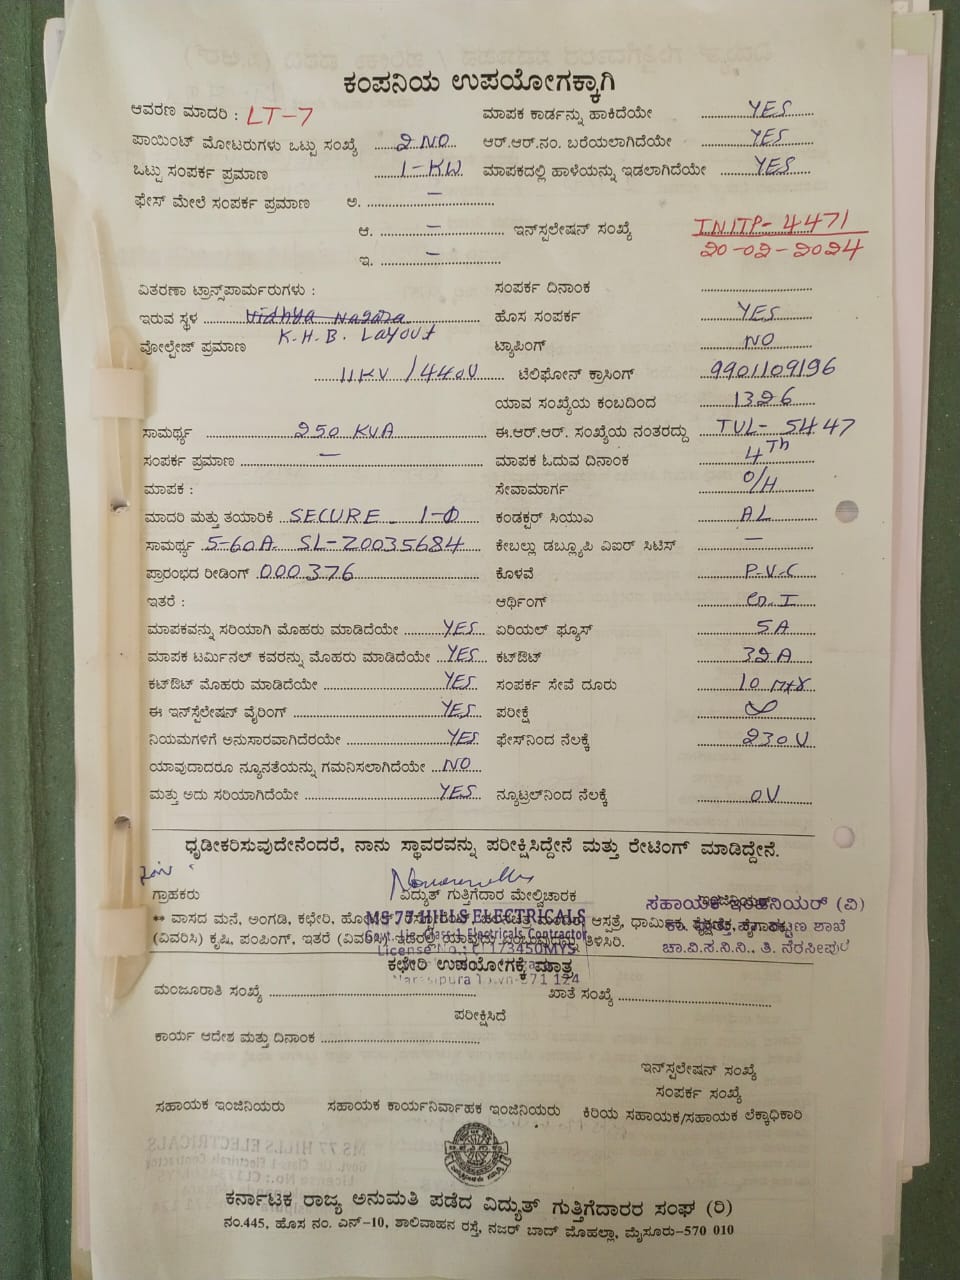 ಕಂಪನಿಯ ಉಪಯೋಗಕ್ಕಾಗಿ
ಆವರಣ ಮಾದರಿ : LT-7 ಮಾಪಕ ಕಾರ್ಡನ್ನು ಹಾಕಿದೆಯೇ YES
ಪಾಯಿಂಟ್ ಮೋಟರುಗಳು ಒಟ್ಟು ಸಂಖ್ಯೆ 2 NO ಆರ್.ಆರ್.ನಂ. ಬರೆಯಲಾಗಿದೆಯೇ YES
ಒಟ್ಟು ಸಂಪರ್ಕ ಪ್ರಮಾಣ 1-KW ಮಾಪಕದಲ್ಲಿ ಹಾಳೆಯನ್ನು ಇಡಲಾಗಿದೆಯೇ YES
ಫೇಸ್ ಮೇಲೆ ಸಂಪರ್ಕ ಪ್ರಮಾಣ ಅ. –
ಆ. – ಇನ್‌ಸ್ಪಲೇಷನ್ ಸಂಖ್ಯೆ INITP-4471
ಇ. – 20-02-2024
ವಿತರಣಾ ಟ್ರಾನ್ಸ್‌ಪಾರ್ಮರುಗಳು : ಸಂಪರ್ಕ ದಿನಾಂಕ
ಇರುವ ಸ್ಥಳ Vidhya Nagara ಹೊಸ ಸಂಪರ್ಕ YES
ವೋಲ್ಟೇಜ್ ಪ್ರಮಾಣ K.H.B. Layout ಟ್ಯಾಪಿಂಗ್ NO
11KV / 440V ಟೆಲಿಫೋನ್ ಕ್ರಾಸಿಂಗ್ 9901109196
ಯಾವ ಸಂಖ್ಯೆಯ ಕಂಬದಿಂದ 1326
ಸಾಮರ್ಥ್ಯ 250 KVA ಈ.ಆರ್.ಆರ್. ಸಂಖ್ಯೆಯ ನಂತರದ್ದು TVL-5447
ಸಂಪರ್ಕ ಪ್ರಮಾಣ – ಮಾಪಕ ಓದುವ ದಿನಾಂಕ 4Th
ಮಾಪಕ : ಸೇವಾಮಾರ್ಗ O/H
ಮಾದರಿ ಮತ್ತು ತಯಾರಿಕೆ SECURE - 1-Φ ಕಂಡಕ್ಟರ್ ಸಿಯುಎ AL
ಸಾಮರ್ಥ್ಯ 5-60A SL-20035684 ಕೇಬಲ್ಲು ಡಬ್ಲ್ಯೂಪಿ ಎಐರ್ ಸಿಟಿಸ್ –
ಪ್ರಾರಂಭದ ರೀಡಿಂಗ್ 000376 ಕೊಳವೆ P-V-C
ಇತರೆ : ಆರ್ಥಿಂಗ್
ಮಾಪಕವನ್ನು ಸರಿಯಾಗಿ ಮೊಹರು ಮಾಡಿದೆಯೇ YES ಏರಿಯಲ್ ಫ್ಯೂಸ್ 5A
ಮಾಪಕ ಟರ್ಮಿನಲ್ ಕವರನ್ನು ಮೊಹರು ಮಾಡಿದೆಯೇ YES ಕಟ್‌ಔಟ್ 32A
ಕಟ್‌ಔಟ್ ಮೊಹರು ಮಾಡಿದೆಯೇ YES ಸಂಪರ್ಕ ಸೇವೆ ದೂರು 10 Mtr
ಈ ಇನ್‌ಸ್ಪೆಲೇಷನ್ ವೈರಿಂಗ್ YES ಪರೀಕ್ಷೆ
ನಿಯಮಗಳಿಗೆ ಅನುಸಾರವಾಗಿದೆರಯೇ YES ಫೇಸ್‌ನಿಂದ ನೆಲಕ್ಕೆ 230V
ಯಾವುದಾದರೂ ನ್ಯೂನತೆಯನ್ನು ಗಮನಿಸಲಾಗಿದೆಯೇ NO
ಮತ್ತು ಅದು ಸರಿಯಾಗಿದೆಯೇ YES ನ್ಯೂಟ್ರಲ್‌ನಿಂದ ನೆಲಕ್ಕೆ 0V
ಧೃಡೀಕರಿಸುವುದೇನೆಂದರೆ, ನಾನು ಸ್ಥಾವರವನ್ನು ಪರೀಕ್ಷಿಸಿದ್ದೇನೆ ಮತ್ತು ರೇಟಿಂಗ್ ಮಾಡಿದ್ದೇನೆ.
ಗ್ರಾಹಕರು ವಿದ್ಯುತ್ ಗುತ್ತಿಗೆದಾರ ಮೇಲ್ವಿಚಾರಕ ಸಹಾಯಕ ಇಂಜಿನಿಯರ್ (ವಿ)
** ವಾಸದ ಮನೆ, ಅಂಗಡಿ, ಕಛೇರಿ, MS 77 HILLS ELECTRICALS ಆಸ್ಪತ್ರೆ, ಧಾರ್ಮಿಕ,
Govt. Lic. Class-1 Electricals Contractor
(ವಿವರಿಸಿ) ಕೃಷಿ, ಪಂಪಿಂಗ್, ಇತರೆ (ವಿವರಿಸಿ) ಇದರಲ್ಲಿ ಯಾವುದು ಎಂಬುವುದನ್ನು ತಿಳಿಸಿರಿ. ಚಾ.ವಿ.ಸ.ನಿ.ನಿ., ತಿ. ನರಸೀಪುರ
License No.: CL173450MYS
ಕಛೇರಿ ಉಪಯೋಗಕ್ಕೆ ಮಾತ್ರ
Narasipura Town-571 124
ಮಂಜೂರಾತಿ ಸಂಖ್ಯೆ ಖಾತೆ ಸಂಖ್ಯೆ
ಪರೀಕ್ಷಿಸಿದೆ
ಕಾರ್ಯ ಆದೇಶ ಮತ್ತು ದಿನಾಂಕ
ಇನ್‌ಸ್ಪಲೇಷನ್ ಸಂಖ್ಯೆ
ಸಂಪರ್ಕ ಸಂಖ್ಯೆ
ಸಹಾಯಕ ಇಂಜಿನಿಯರು ಸಹಾಯಕ ಕಾರ್ಯನಿರ್ವಾಹಕ ಇಂಜಿನಿಯರು ಕಿರಿಯ ಸಹಾಯಕ/ಸಹಾಯಕ ಲೆಕ್ಕಾಧಿಕಾರಿ
ಕರ್ನಾಟಕ ರಾಜ್ಯ ಅನುಮತಿ ಪಡೆದ ವಿದ್ಯುತ್ ಗುತ್ತಿಗೆದಾರರ ಸಂಘ (ರಿ)
ನಂ.445, ಹೊಸ ನಂ. ಎನ್-10, ಶಾಲಿವಾಹನ ರಸ್ತೆ, ನಜರ್ ಬಾದ್ ಮೊಹಲ್ಲಾ, ಮೈಸೂರು-570 010